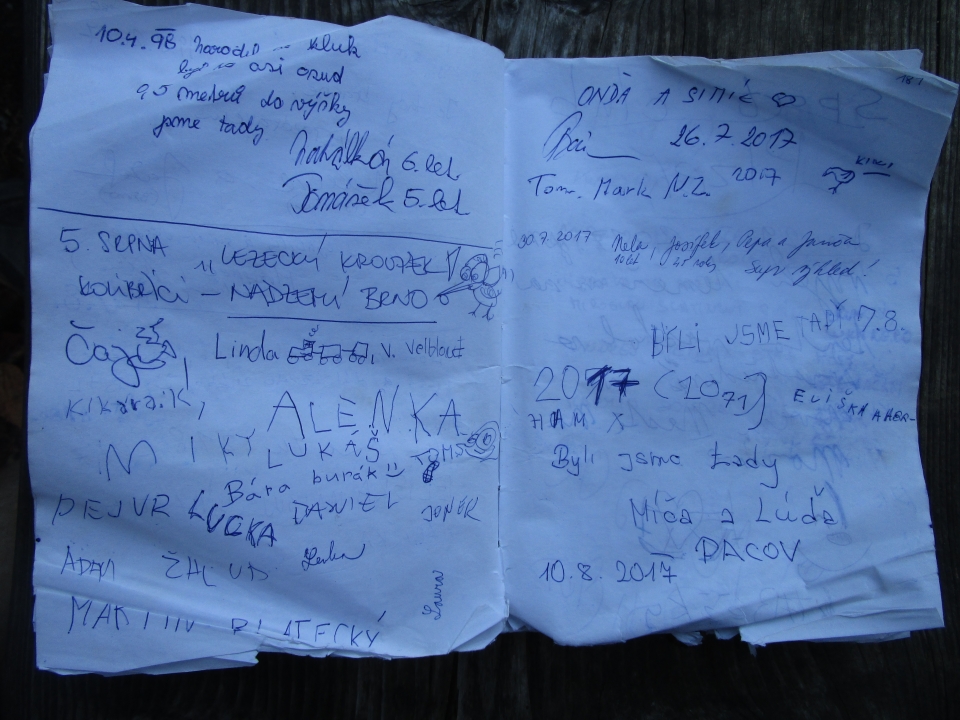 10.4.98 narodil se kluk
byl to asi osud
95 metrů do výšky
jsme tady
6. let
Tomášek 5. let
5. SRPNA
"LEZECKÝ KROUŽEK
KOLIBŘÍCI – NADZEMÍ BRNO
Čaj
Linda V. Velbloud
KIKYRAIK,
ALENKA
MIKY LUKÁŠ TOMS
Bára burák
PEJUR LUCKA DANIEL
ADAM ŽALUD Lenka
Laura
MARTIN
181
ONDÁ A SIMČE
26.7.2017
Tom. Mark N.Z. 2017
KIWI
30.7.2017 Nela, Josífek, Pepa a Janča
10 let
Supr výhled!
BYLI JSME TADY 7.8.
2017 (1071) ELIŠKA A HER-
HAM X
Byli jsme tady
Míča a Lída
– PACOV
10.8.2017